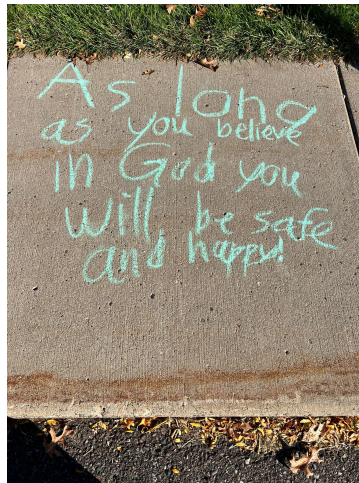 As long
as you believe
in God you
will be safe
and happy!